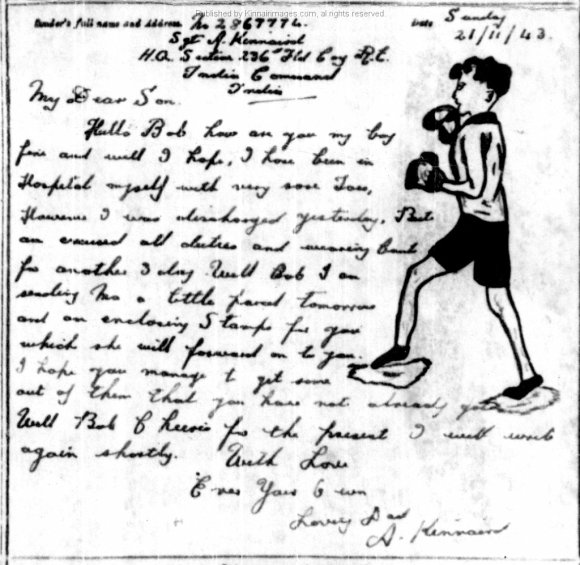 Published by Kinnairdimages.com, all rights reserved.
Sender's full name and Address No 2867776.
Date Sunday
21/11/43.
Sgt A. Kinnaird
H.Q. Section 236 Fld Coy R.E.
India Command
India
My Dear Son.
Hullo Bob how are you my boy
fine and well I hope, I have been in
Hospital myself with very sore Toes,
However I was discharged yesterday, But
am excused all duties and wearing
for another 3 days Well Bob I am
sending Ma a little parcel tomorrow
and am enclosing Stamps for you
which she will forward on to you.
I hope you manage to get some
out of them that you have not already got
Well Bob Cheerio for the present I will write
again shortly. With Love
Ever Your Own
Loving Dad
A. Kinnaird